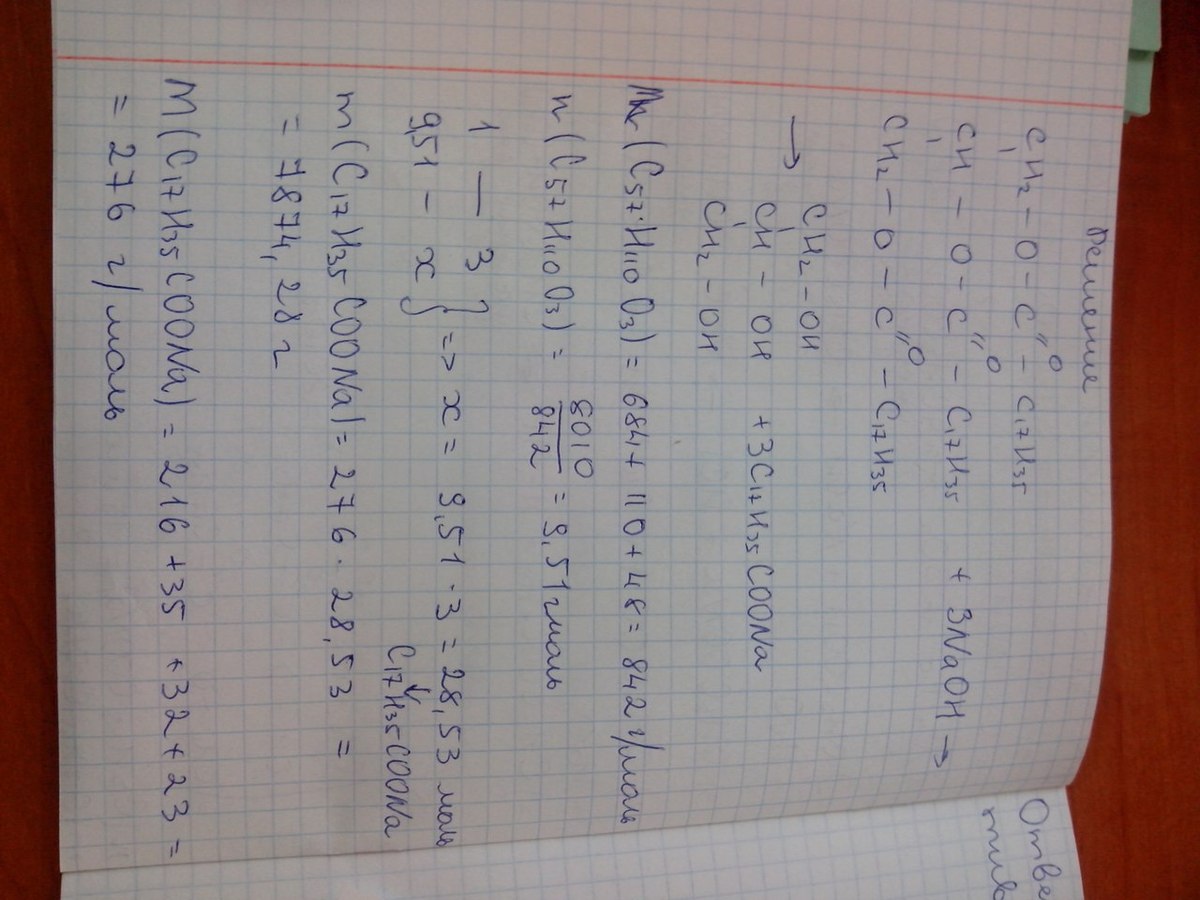 Решение
CH₂ – O – C ″O – C₁₇H₃₅
CH – O – C ″O – C₁₇H₃₅ + 3NaOH →
CH₂ – O – C ″O – C₁₇H₃₅
→ CH₂ – OH
CH – OH + 3C₁₇H₃₅COONa
CH₂ – OH
(C₅₇H₁₁₀O₃) = 684 + 110 + 48 = 842 г/моль
n (C₅₇H₁₁₀O₃) = 8010/842 = 9,51 моль
1 — 3
9,51 – x } => x = 9,51 · 3 = 28,53 моль
C₁₇H₃₅COONa
m (C₁₇H₃₅COONa) = 276 · 28,53 =
= 7874,28 г
M (C₁₇H₃₅COONa) = 216 + 35 + 32 + 23 =
= 276 г/моль